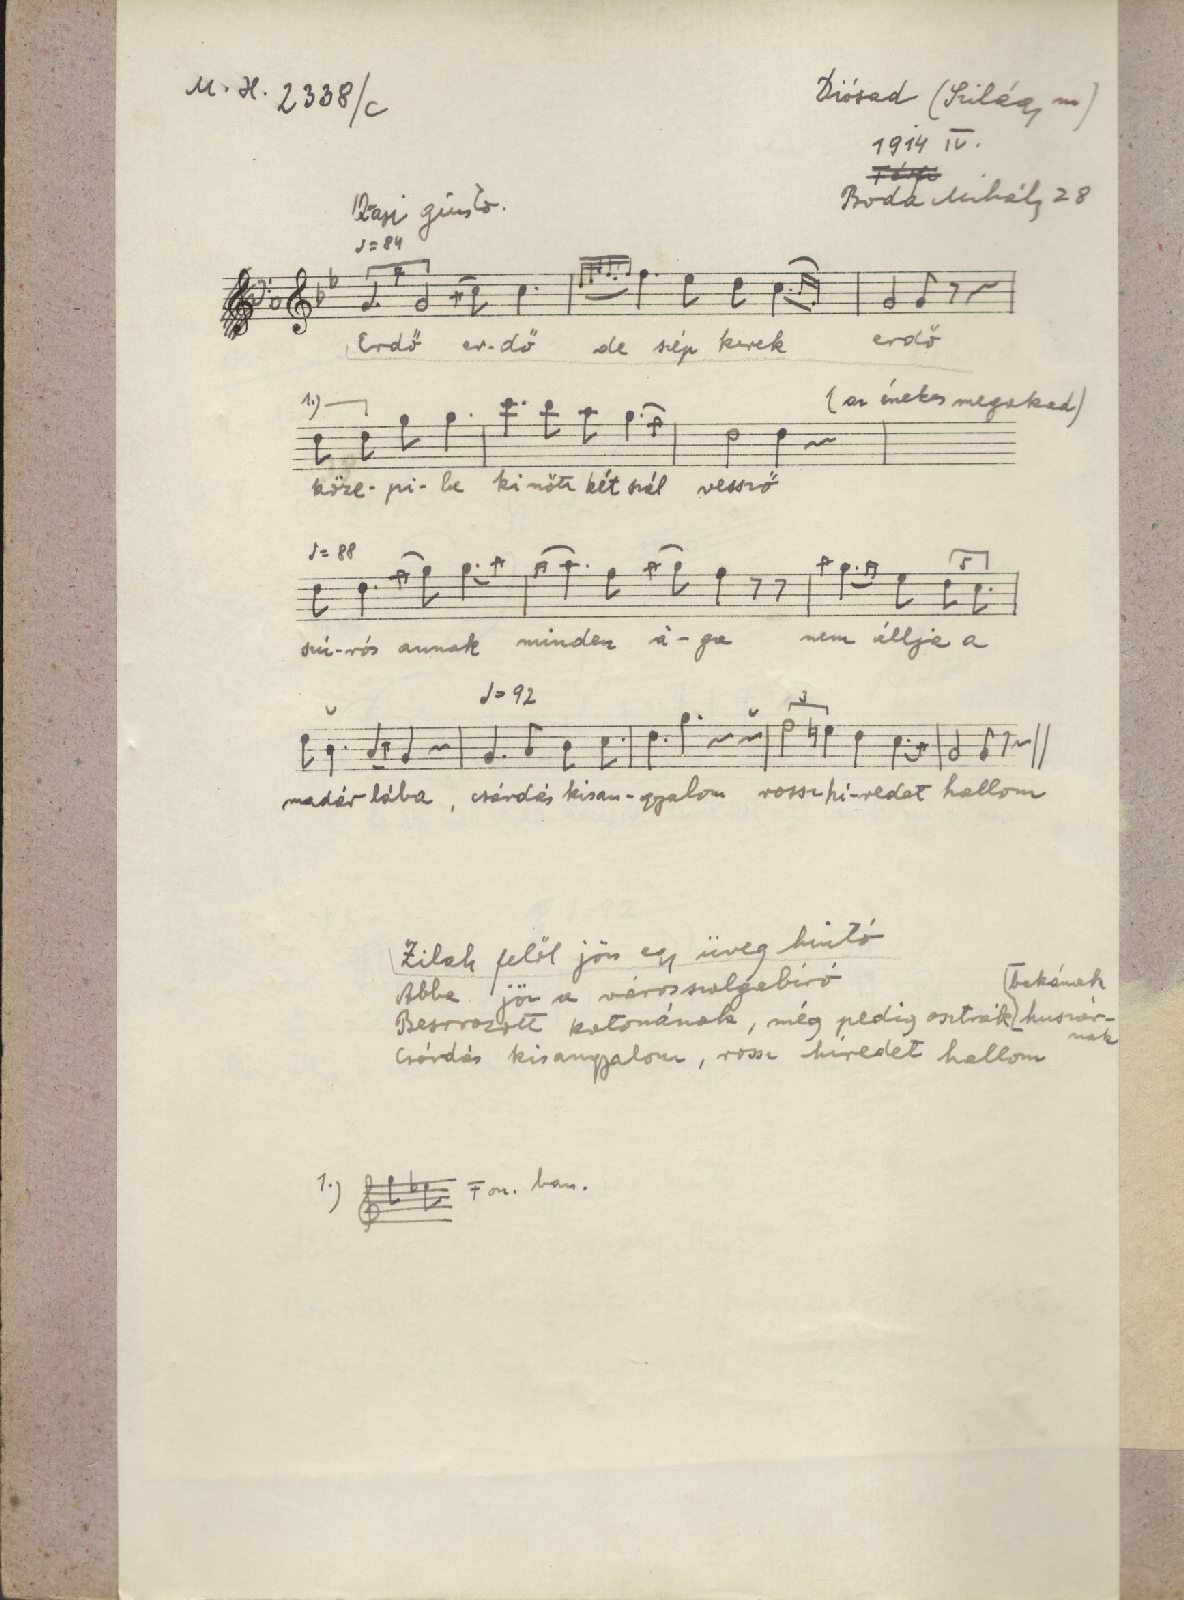 M. H. 2338/c
Diósad (Szilágy m)
1914 IV.
Boda Mihály 28
giusto.
♩= 84
Erdő er-dő de szép kerek erdő
1.) (az énekes megakad)
köze- pi- be ki nőtt két szál vessző
♩= 88
5
szú-rós annak minden á-ga nem állja a
♩= 92
3
madár lába, csárdás kisan-gyalom rossz hí-redet hallom
Zilah felől jön egy üveg hintó
Abba jön a város szolgabíró
Besorozott katonának, még pedig osztrák (bakának
huszár-
nak
Csárdás kisangyalom, rossz híredet hallom
1.) Fon. ban.